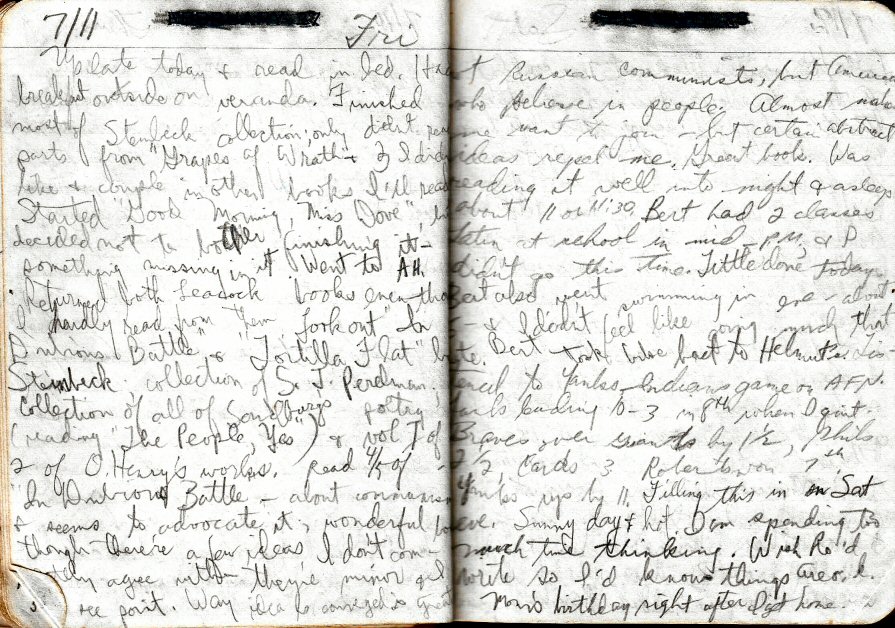 7/11 Fri
Up late today & read in bed. Had
breakfast outside on veranda. Finished
most of Steinbeck collection; only didn't read
parts from "Grapes of Wrath" & I didn't
like & couple in other books I'll read
Started "Good Morning, Miss Dove",
decided not to bother finishing it -
something missing in it. Went to AH.
Returned both Leacock books even tho
I hardly read from them & took out "In
Dubious Battle" & "Tortilla Flat" by
Steinbeck, collection of S. J. Perelman,
collection of all of Sandburg's poetry
(reading "The People, Yes") & vol I of
2 of O. Henry's works. Read 4/5 of
"In Dubious Battle - about communism
& seems to advocate it, wonderful
though there're a few ideas I don't com-
pletely agree with - they're minor
see point. Way idea is conveyed is great
not Russian communists, but American
who believe in people. Almost makes
me want to join - but certain abstract
ideas repel me. Great book. Was
reading it well into night & asleep
about 11 or 11:30. Bert had 2 classes
Latin at school in mid-p.m. & I
didn't go this time. Little done today.
Bert also went swimming in eve - about
& I didn't feel like doing much that
Bert took bike back to Helmut's. Lis-
tened to Yanks-Indians game on AFN.
Yanks leading 10-3 in 8th when I quit.
Braves over Giants by 1 1/2, Phils
2 1/2, Cards 3 7th
Yanks up by 11. Filling this in on Sat
eve. Sunny day & hot. I am spending too
much time thinking. Wish Ro'd
write so I'd know things are o.k.
Mom's birthday right after I get home.